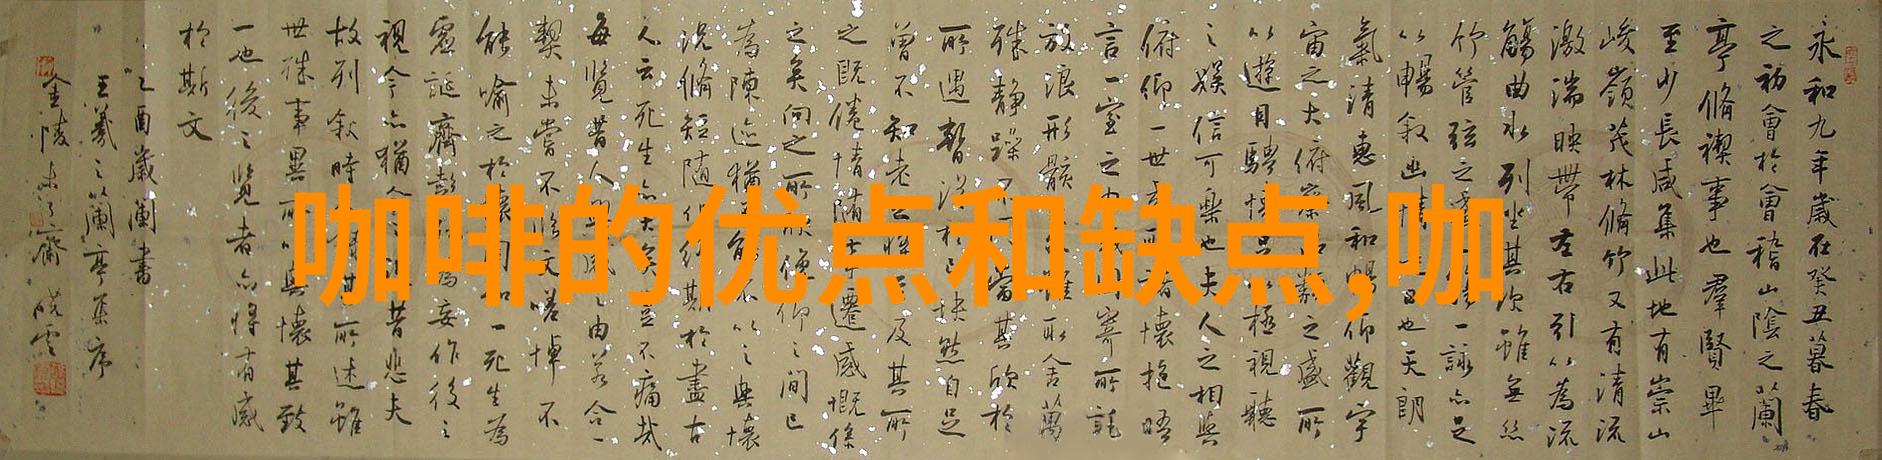 咖啡的优点和缺点,咖
永和九年歲在癸丑暮春
之初會於會稽山陰之蘭
亭脩禊事也羣賢畢
至少長咸集此地有崇山
峻嶺茂林脩竹又有清流
激湍映帶左右引以為流
觴曲水列坐其次雖無絲
竹管弦之盛一詠亦足
以暢敘幽情日也天朗
氣清惠風和暢仰觀宇
宙之大俯察之盛所
以遊目騁懷足以極視聽
之娛信可樂也夫人之相與
俯仰一世或取諸懷抱晤
言一室之內寄所託
放浪形骸之外雖取舍萬
殊靜躁不同當其欣於
所遇暫得於己快然自足
曾不知老之將至及其所
之既倦情隨事遷感慨係
之矣向之所欣俛仰之間已
為陳迹猶不以之興懷
況脩短隨化終期於盡古
人云死生亦大矣豈不痛哉
每覽昔人興感之由若合一
契未嘗不臨文嗟悼不
能喻之於懷固知一死生為
虛誕齊彭殤為妄作後之
視今亦猶今之視昔悲夫
故列敘時人錄其所述雖
世殊事異所以興懷其致
一也後之覽者亦將有感
於斯文
乙酉歲蘭書
王羲之蘭亭集序
金陵齋